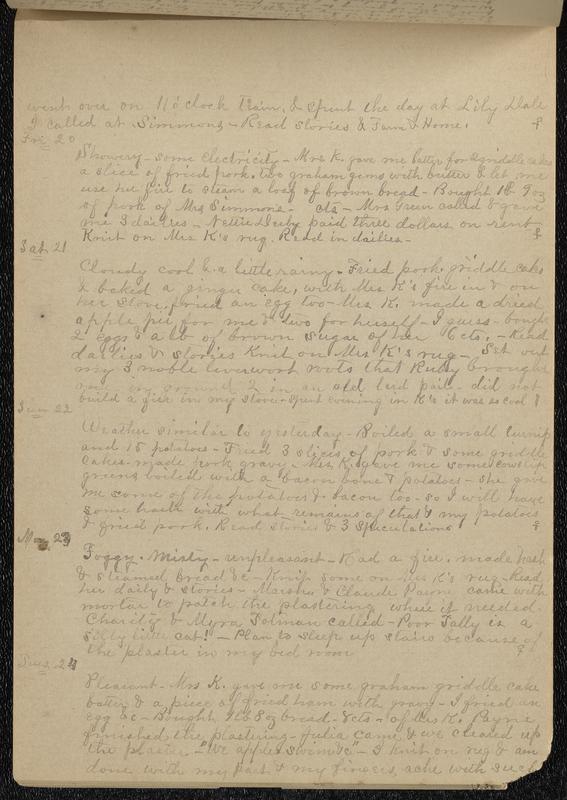 went over on 11 o'clock train, & spent the day at Lily Dale
I called at Simmons - Read stories & Farm & Home.
Fri 20
Showery - some electricity - Mrs K. gave me batter for griddle cakes
a slice of fried pork, two graham gems with butter & let me
use her fire to steam a loaf of brown bread - Bought 1 lb 9 oz
of pork of Mrs Simmons - cts - Mrs Green called & gave
me 3 dailies - Nettie Derby paid three dollars on rent
Knit on Mrs K's rug. Read in dailies -
Sat 21
Cloudy cool & a little rainy - Fried pork, griddle cake
& baked a ginger cake, with Mrs K's fire in & on
her stove, fried an egg too - Mrs K. made a dried
apple pie for me & two for herself - I guess - bought
2 eggs & a lb of brown sugar of her 6 cts. - Read
dailies & stories Knit on Mrs K's rug - Set out
my 3 noble liverwort roots that Ruby brought
in my ground 2 in an old lard pail - did not
build a fire in my stove - spent evening in K's it was so cool
Sun 22
Weather similar to yesterday - Boiled a small turnip
and 15 potatoes - Fried 3 slices of pork & some griddle
cakes - made pork gravy - Mrs K. gave me some cowslip
greens boiled with a bacon bone & potatoes - she gave
me some of the potatoes & bacon too - so I will have
some hash with what remains of that & my potatoes
& fried pork. Read stories & 3 Speculations
Mon 23
Foggy - Misty - unpleasant - Had a fire, made hash
& steamed bread &c - Knit some on Mrs K's rug - Read
her daily & stories - Marsha & Claude Payne came with
mortar to patch the plastering where it needed -
Charity & Myra Tolman called - Poor Tally is a
silly little cat! - Plan to sleep up stairs because of
the plaster in my bed room
24
Pleasant - Mrs K. gave me some graham griddle cake
batter & a piece of fried ham with gravy - I fried an
egg &c - Bought 1 lb 8 oz bread - 8 cts - of Mrs K. Payne
finished the plastering - Julia came & we cleared up
the plaster - "We apples swim &c" - I knit on rug & am
done with my part & my fingers ache with such